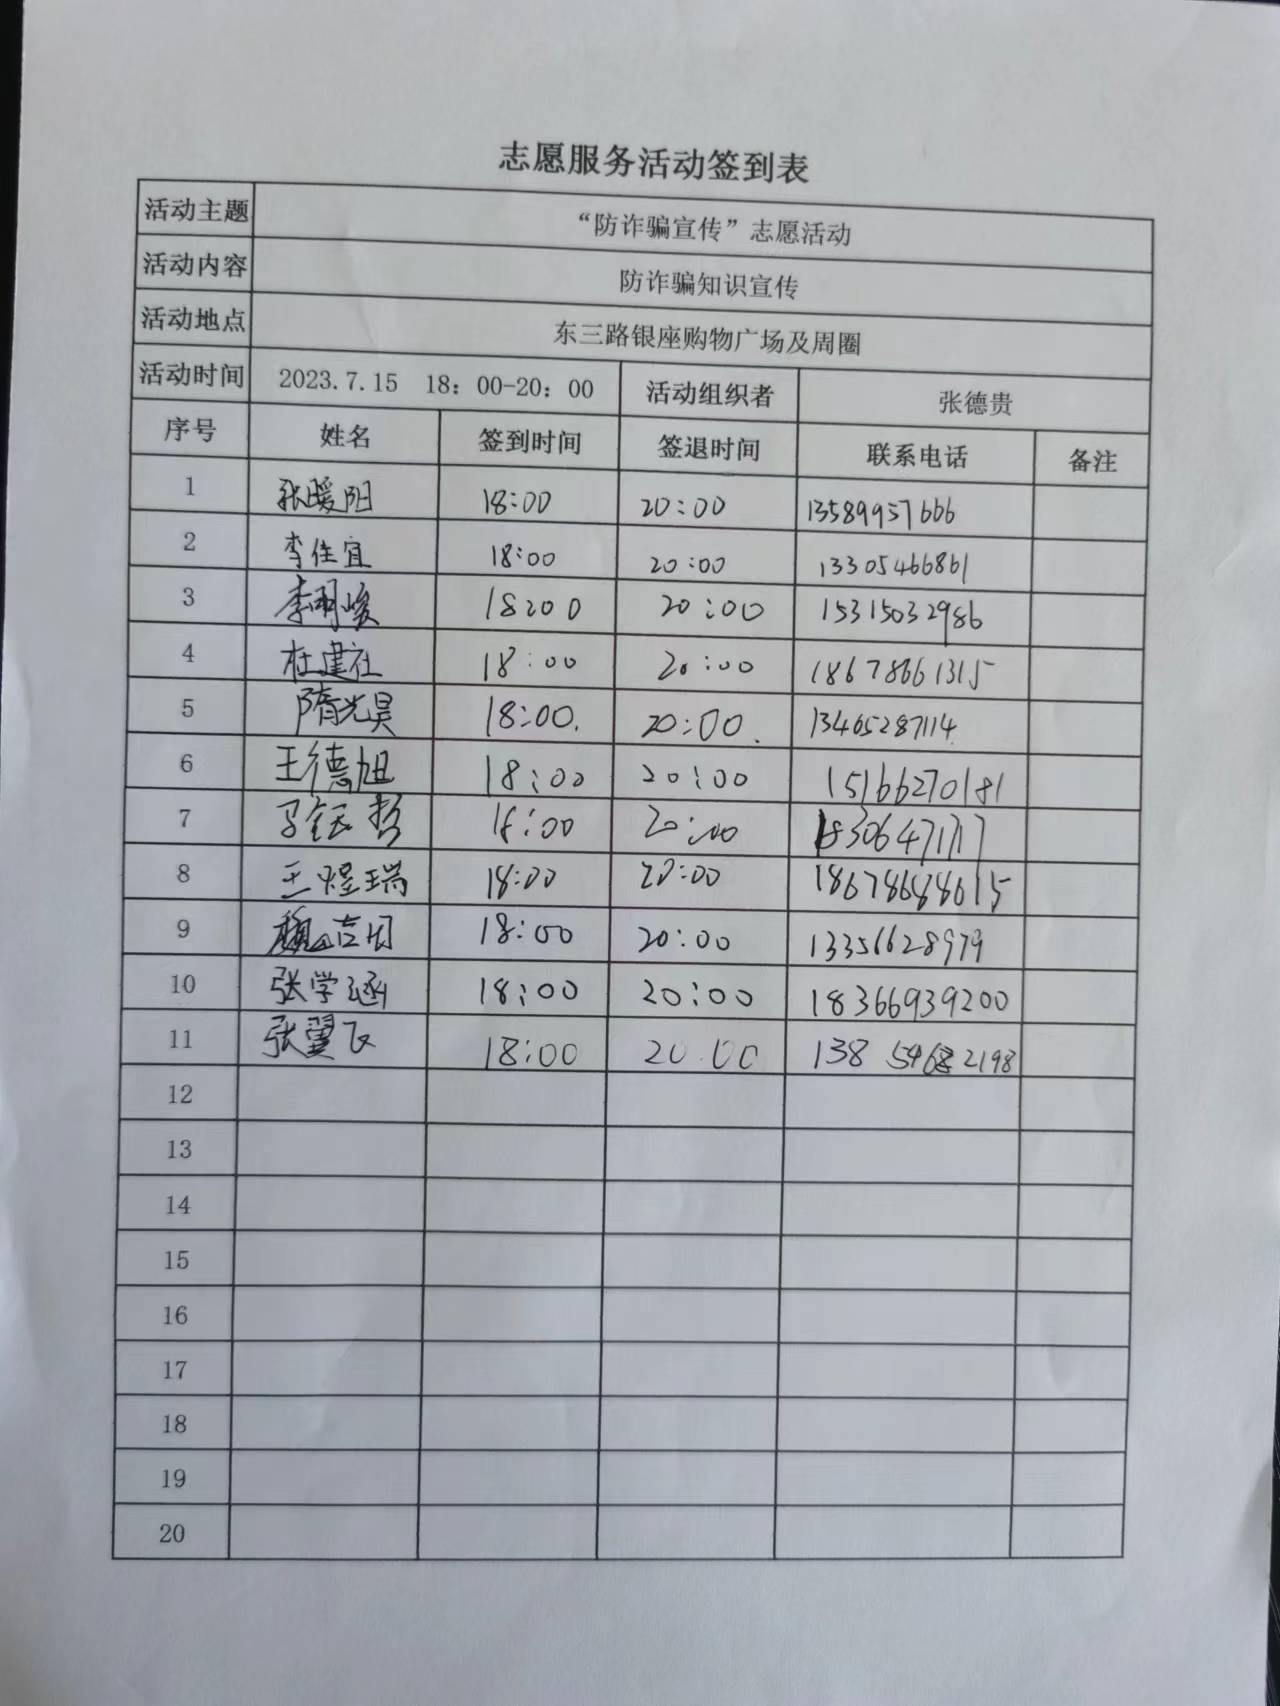 志愿服务活动签到表
活动主题 “防诈骗宣传”志愿活动
活动内容 防诈骗知识宣传
活动地点 东三路银座购物广场及周圈
活动时间 2023.7.15 18：00-20：00 活动组织者 张德贵
序号 姓名 签到时间 签退时间 联系电话 备注
1 张暖阳 18:00 20:00 13589957666
2 李佳宜 18:00 20:00 13305466861
3 李明峻 18:00 20:00 15315032986
4 杜建社 18:00 20:00 18678661315
5 隋光昊 18:00. 20:00. 13405287114
6 王德旭 18:00 20:00 15166270181
7 18:00 20:00
8 王煜瑞 18:00 20:00
9 18:00 20:00 13356628979
10 张学涵 18:00 20:00 18366939200
11 张翼飞 18:00 20:00
12
13
14
15
16
17
18
19
20